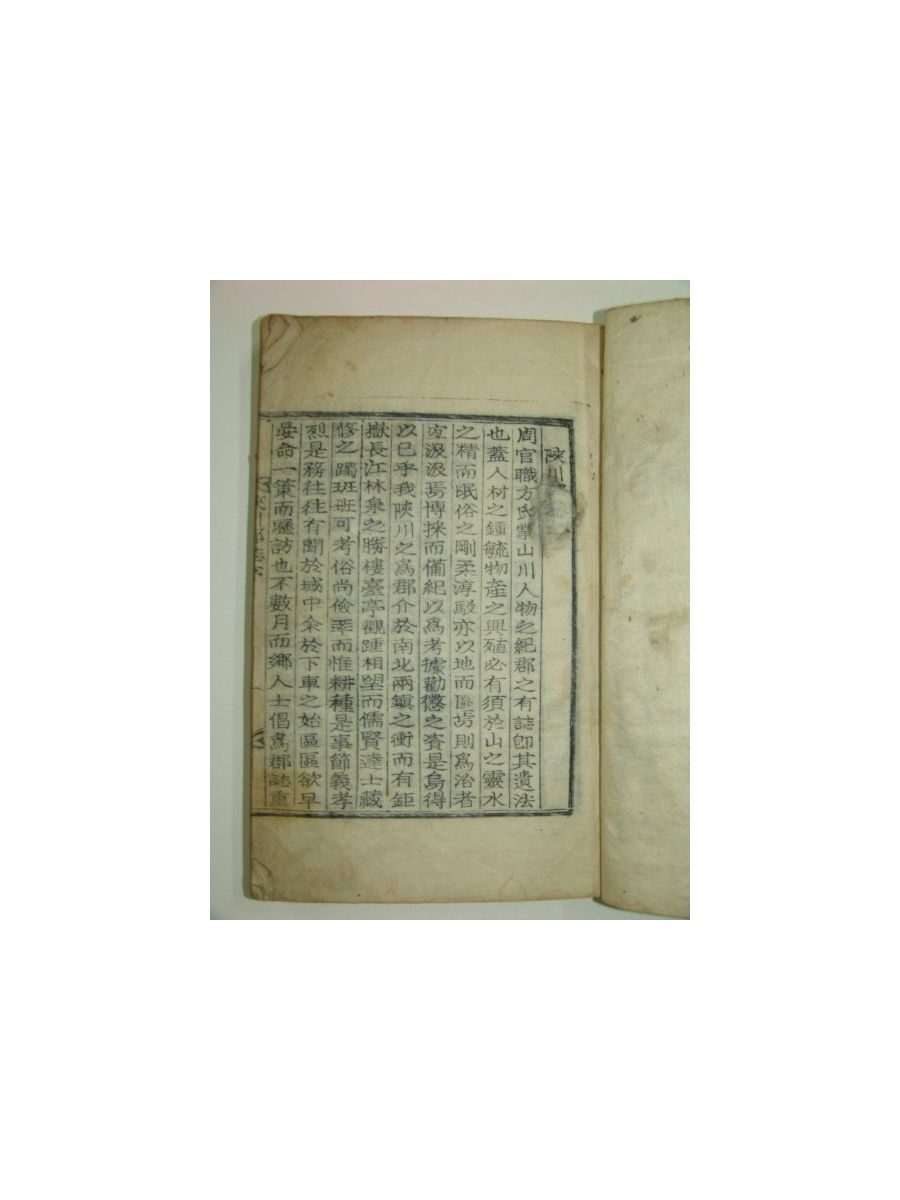 陜川
周官職方氏掌山川人物之紀郡之有誌卽其遺法
也蓋人材之鍾毓物產之興殖必有須於山之靈水
之精而氓俗之剛柔淳駁亦以地而區焉則爲治者
宜汲汲焉博採而備紀以爲考據勸懲之資是烏得
以已乎我陜川之爲郡介於南北兩鎭之衝而有鉅
嶽長江林泉之勝樓臺亭觀踵相望而儒賢達士藏
修之躅班班可考俗尚儉率而惟耕種是事節義孝
烈是務往往有聞於域中余於下車之始區區欲早
晏命一策而歷訪也不數月而鄕人士倡爲郡誌重